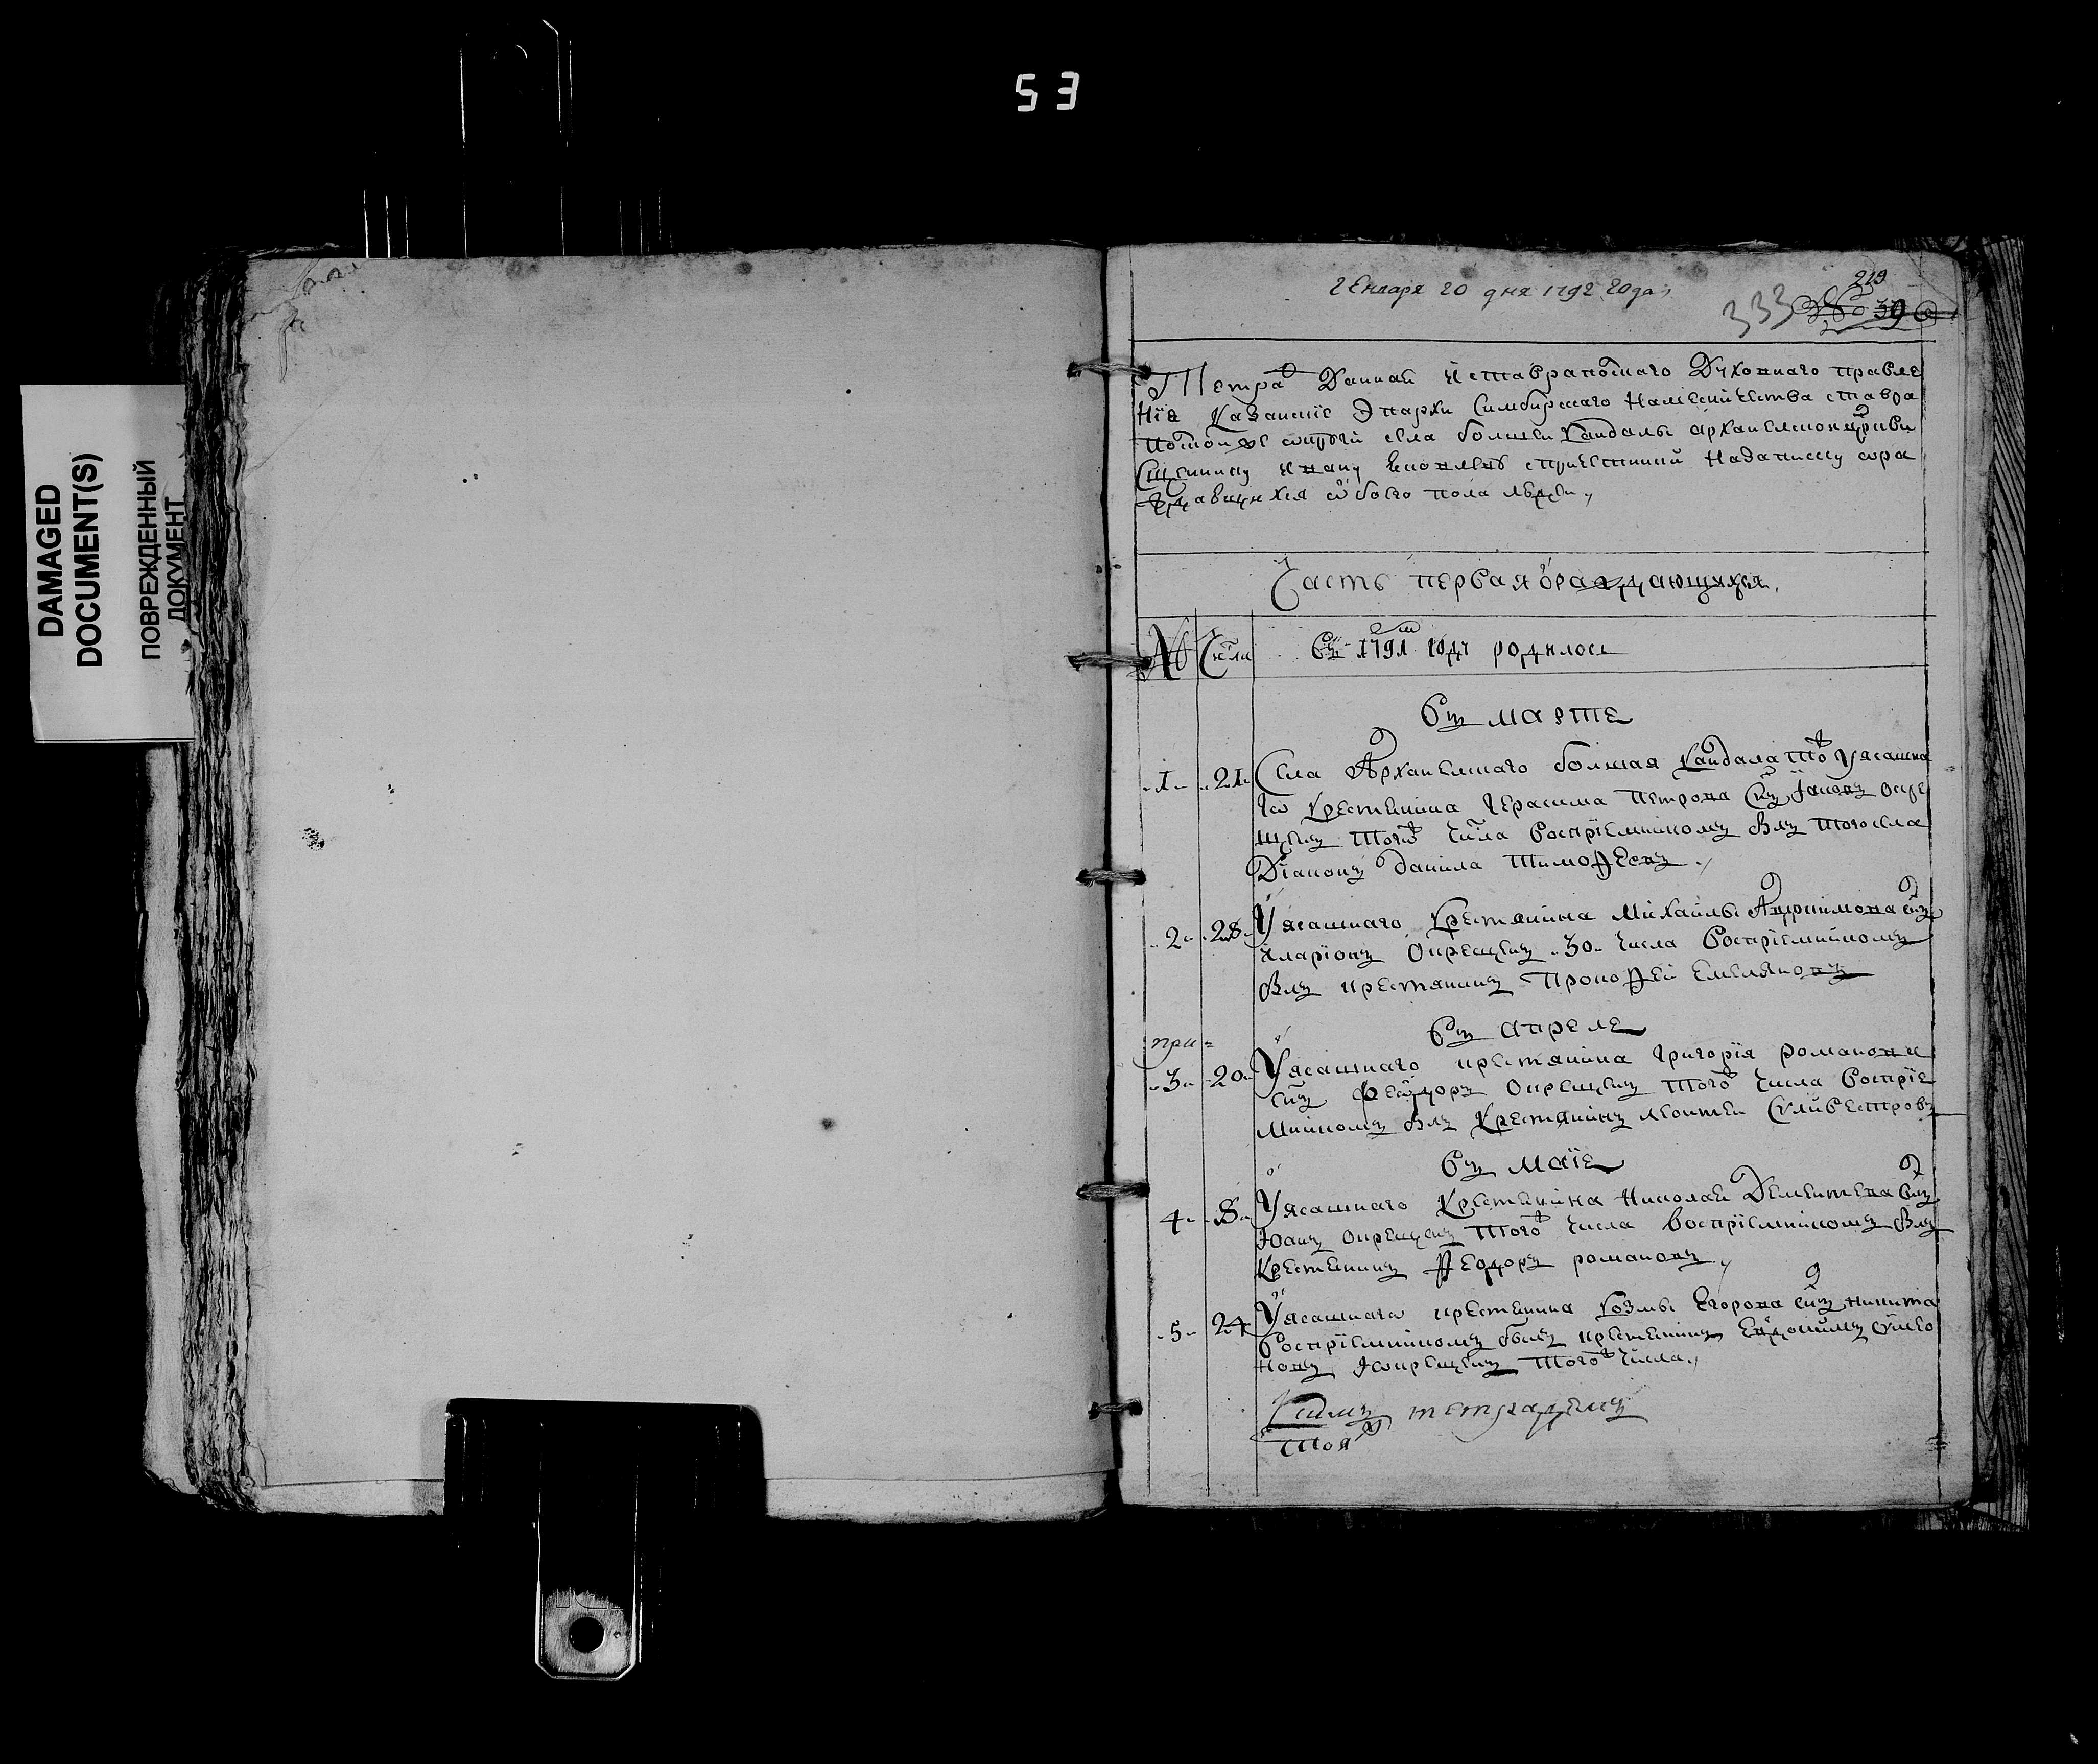 53
DAMAGED
DOCUMENT(S)
ПОВРЕЖДЕННЫЙ
ДОКУМЕНТ
Генваря 20 дня 1792 года
219
333 № 39
Тетрадь Данная из ставрапольского Духовнаго правле
ния Казанские Эпархи Симбирскаго Намесничества ставра
села большеи Кандалы архангельской церкви
Священнику
обоего пола людеи
Часть первая о раждающихся
№ Числа Въ 1791 году родилось
Въ марте
1 21 Села Архангельскаго большая Кандала тожъ Уясашна
го Крестьянина Герасима Петрова сынъ окре
щенъ тогожъ числа Восприемникомъ былъ того села
Диаконъ Данила Тимофеевъ
2 28 Уясашнаго Крестьянина Михаилы сынъ
иларионъ Окрещенъ 30 числа Восприемникомъ
былъ крестьянинъ Прокофеи Емельяновъ
при
Въ апреле
3 20 Уясашнаго крестьянина Григория романова
сынъ Феодоръ Окрещенъ тогожъ числа Восприе
мникомъ былъ Крестьянинъ Селивестровъ
Въ маие
4 8 Уясашнаго Крестьянина Николаи Дементева сынъ
Иоанъ окрещенъ тогожъ числа восприемникомъ былъ
Крестьянинъ Феодоръ романовъ
5 24 Уясашнаго крестьянина Козмы Егорова сынъ никита
Восприемникомъ былъ крестьянинъ Евдокимъ Симео
новъ Иокрещенъ тогожъ числа
тетрадямъ